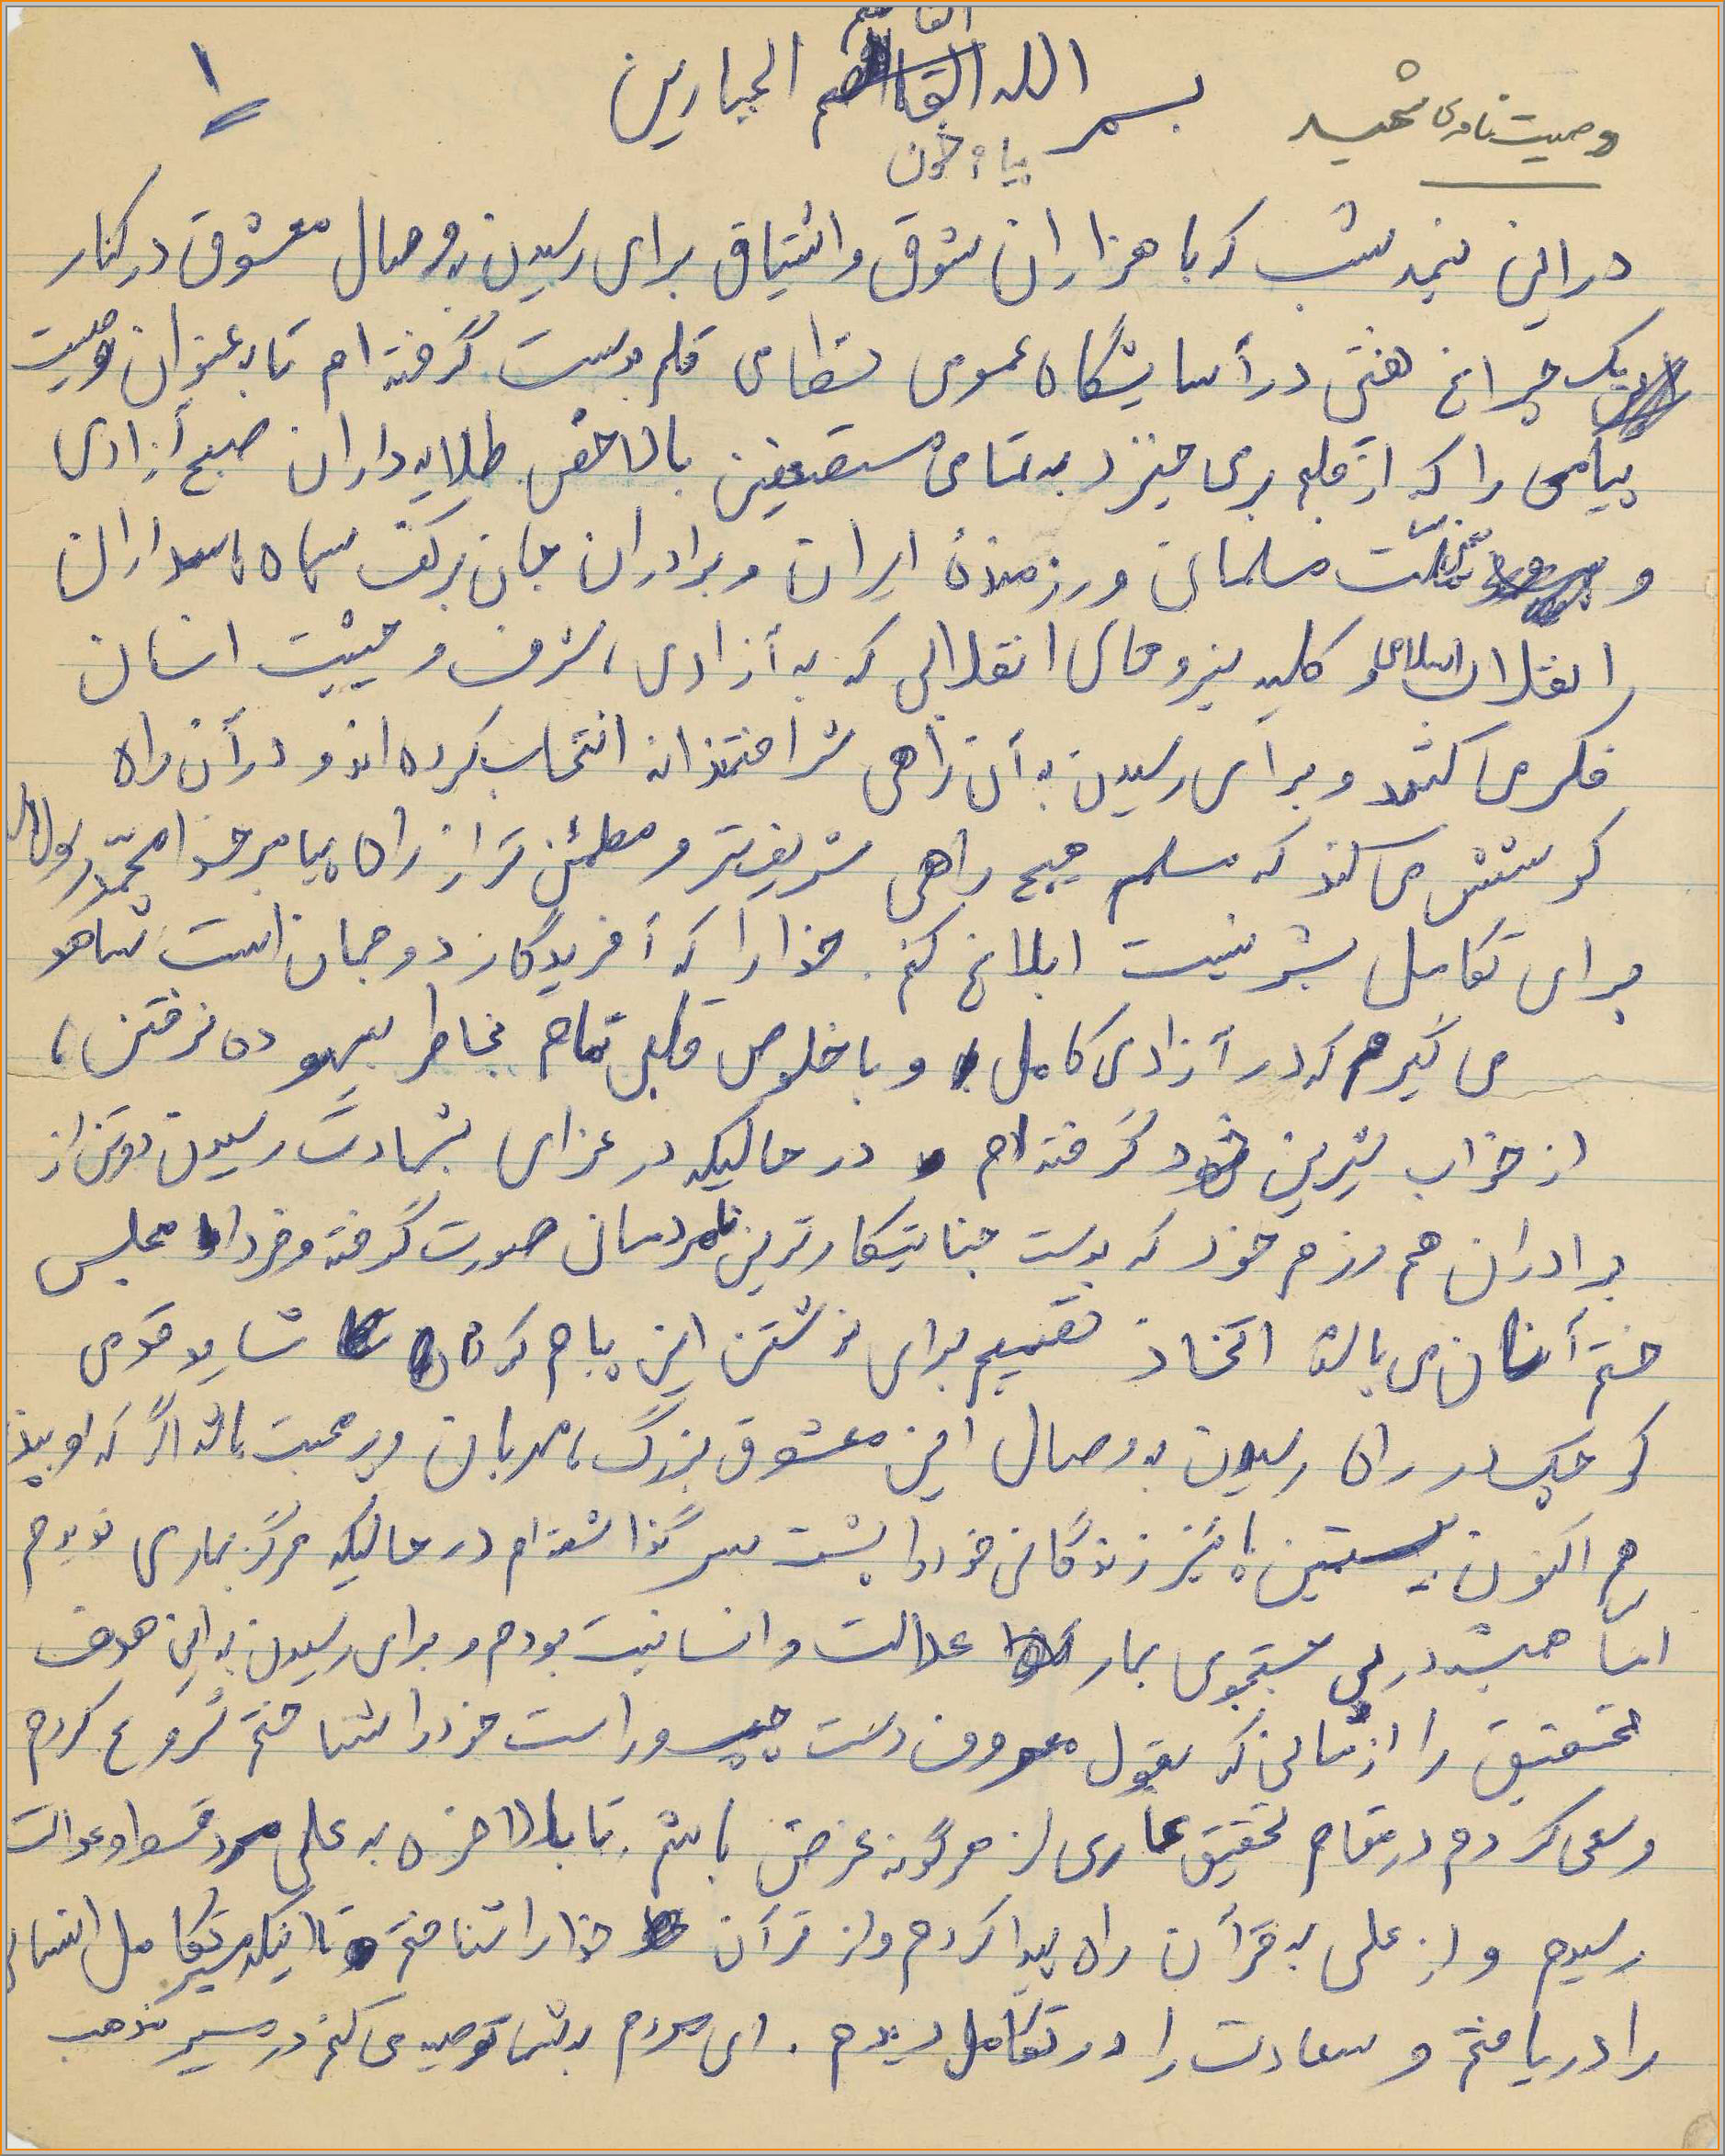 وصیت نامه شهید
۱
بسم الله القاصم الجبارین
پیام خون
در این نیمه شب که با هزاران شوق و اشتیاق برای رسیدن به وصال معشوق در کنار
یک چراغ نفتی در آسایشگاه عمومی نظامی قلم بدست گرفته ام تا به عنوان وصیت
پیامی را که از قلبم برمی خیزد به تمامی مستضعفین بالاخص طلایه داران صبح آزادی
و ملت مسلمان و رزمنده ایران و برادران جان برکف سپاه پاسداران
انقلاب اسلامی و کلیه نیروهای انقلابی که به آزادی، شرف و حیثیت انسان
فکر می کنند و برای رسیدن به آن راهی شرافتمندانه انتخاب کرده اند و در آن راه
کوشش می کنند که مسلم هیچ راهی شریفتر و مطمئن تر از راه پیامبر خدا محمد رسول الله
برای تکامل بشر نیست ابلاغ کنم. خدا را که آفریدگار دو جهان است شاهد
می گیرم که در آزادی کامل و با خلوص قلبی تمام بخاطر بیهوده نرفتن،
از خواب شیرین خود گرفته ام در حالیکه در عزای بشهادت رسیدن دوتن از
برادران هم رزم خود که بدست جنایتکارترین نامردمان صورت گرفته و فردا مجلس
ختم آنان می باشد اتخاذ تصمیم برای نوشتن این پیام کردم شاید قدمی
کوچک در راه رسیدن به وصال این معشوق بزرگ، مهربان و پر محبت باشد اگر که او بپذیرد
هم اکنون بیستمین پائیز زندگانی خود را پشت سر گذاشته ام در حالیکه هرگز بهاری ندیدم
اما همیشه در پی جستجوی بهار عدالت و انسانیت بودم و برای رسیدن به این هدف
تحقیق را از زمانی که بقول معروف دست چپ و راست خود را شناختم شروع کردم
و سعی کردم در مقام تحقیق عاری از هرگونه غرض باشم. تا بالاخره به علی مرد قسط و عدالت
رسیدم و از علی به قرآن راه پیدا کردم و از قرآن خدا را شناختم تا اینکه مسیر تکامل انسانی
را دریافتم و سعادت را در تکامل دیدم. ای مردم به شما توصیه می کنم در مسیر مذهب